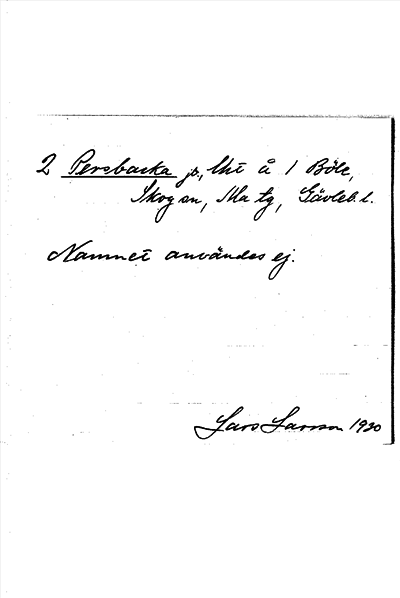 2 Persbacka js, lht å 1 Böle,
Skog sn, Ala tg, Gävleb. l.
Namnet användes ej.
Lars Larsson 1930